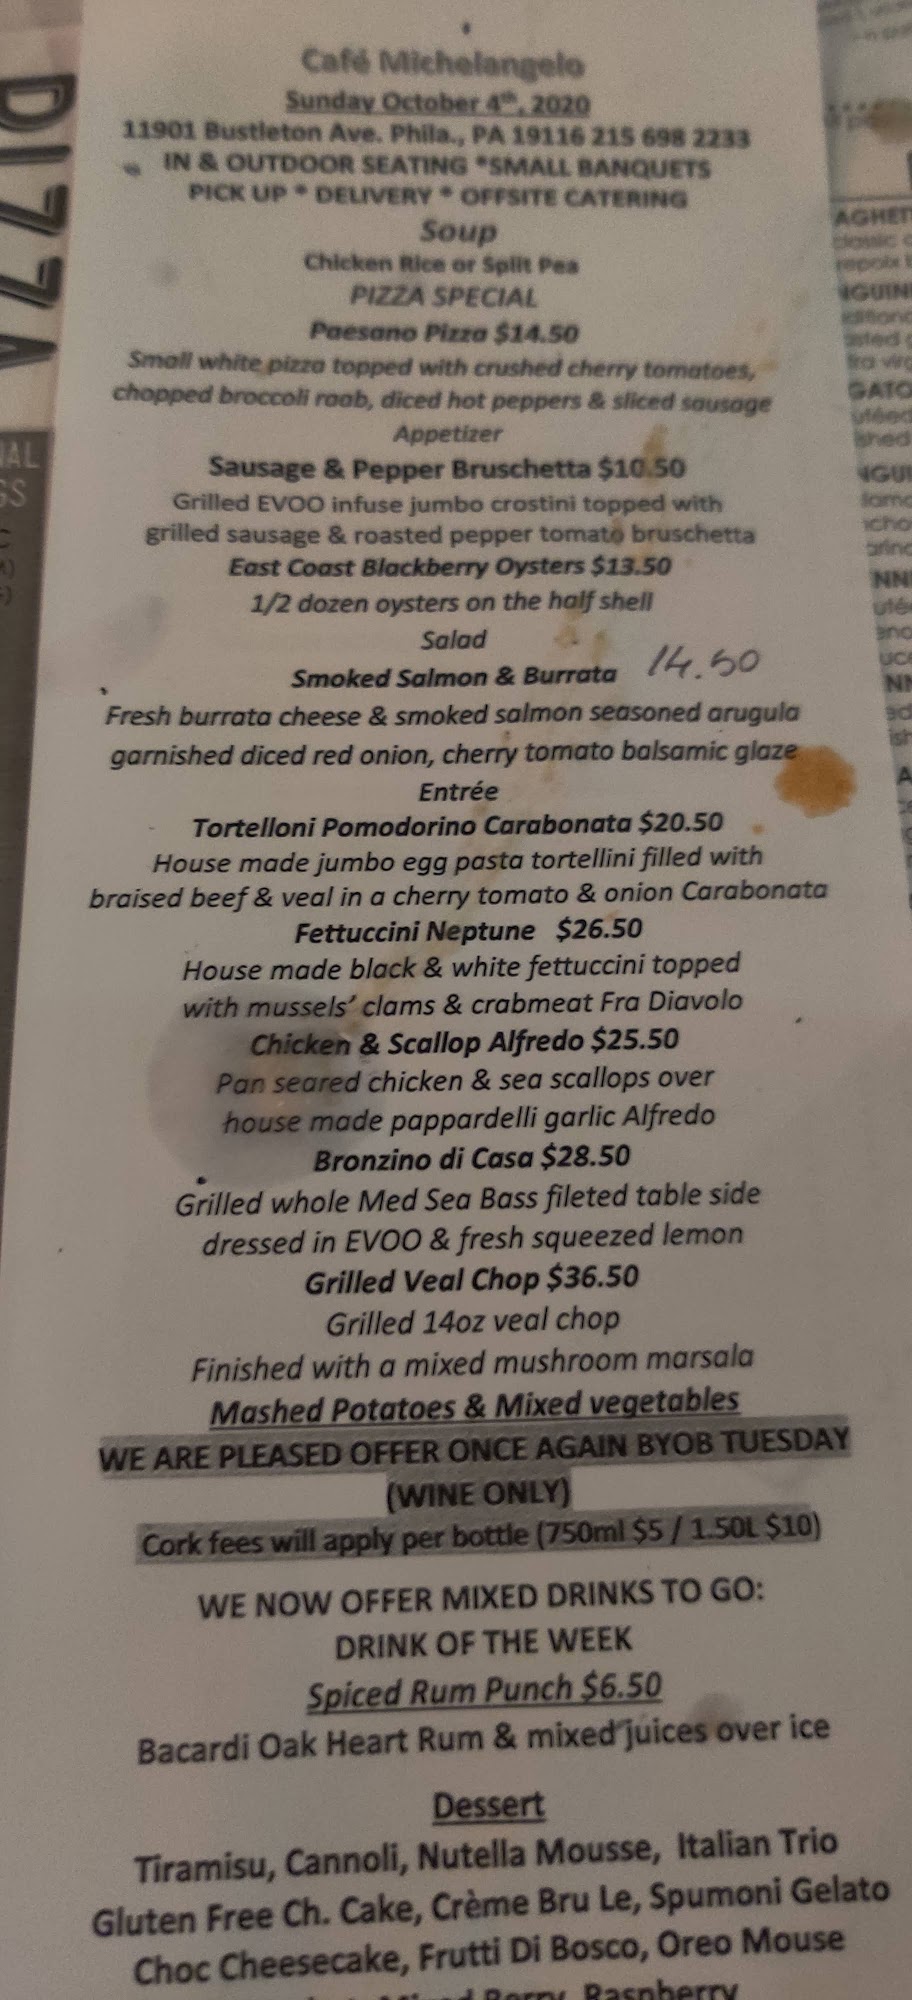 Café Michelangelo
Sunday October 4th, 2020
11901 Bustleton Ave. Phila., PA 19116 215 698 2233
IN & OUTDOOR SEATING *SMALL BANQUETS
PICK UP * DELIVERY * OFFSITE CATERING
Soup
Chicken Rice or Split Pea
PIZZA SPECIAL
Paesano Pizza $14.50
Small white pizza topped with crushed cherry tomatoes,
chopped broccoli raab, diced hot peppers & sliced sausage
Appetizer
Sausage & Pepper Bruschetta $10.50
Grilled EVOO infuse jumbo crostini topped with
grilled sausage & roasted pepper tomato bruschetta
East Coast Blackberry Oysters $13.50
1/2 dozen oysters on the half shell
Salad
Smoked Salmon & Burrata 14.50
Fresh burrata cheese & smoked salmon seasoned arugula
garnished diced red onion, cherry tomato balsamic glaze
Entrée
Tortelloni Pomodorino Carabonata $20.50
House made jumbo egg pasta tortellini filled with
braised beef & veal in a cherry tomato & onion Carabonata
Fettuccini Neptune $26.50
House made black & white fettuccini topped
with mussels' clams & crabmeat Fra Diavolo
Chicken & Scallop Alfredo $25.50
Pan seared chicken & sea scallops over
house made pappardelli garlic Alfredo
Bronzino di Casa $28.50
Grilled whole Med Sea Bass fileted table side
dressed in EVOO & fresh squeezed lemon
Grilled Veal Chop $36.50
Grilled 14oz veal chop
Finished with a mixed mushroom marsala
Mashed Potatoes & Mixed vegetables
WE ARE PLEASED OFFER ONCE AGAIN BYOB TUESDAY
(WINE ONLY)
Cork fees will apply per bottle (750ml $5 / 1.50L $10)
WE NOW OFFER MIXED DRINKS TO GO:
DRINK OF THE WEEK
Spiced Rum Punch $6.50
Bacardi Oak Heart Rum & mixed juices over ice
Dessert
Tiramisu, Cannoli, Nutella Mousse, Italian Trio
Gluten Free Ch. Cake, Crème Bru Le, Spumoni Gelato
Choc Cheesecake, Frutti Di Bosco, Oreo Mouse
Mixed Berry, Raspberry